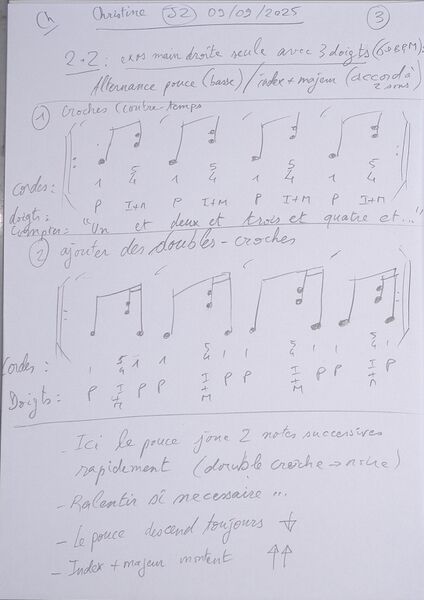 Ch Christine J2 09/09/2025 3
2.2: exos main droite seule avec 3 doigts (60 BPM):
Alternance pouce (basse) / index + majeur (accord à
2 sons)
1 croches (contre-temps
Cordes: 1 5 4 1 5 4 1 5 4 1 5 4
doigts: P I+M P I+M P I+M P I+M
Compter: "Un et deux et trois et quatre et..."
2 ajouter des doubles-croches
Cordes: 1 5 4 1 1 5 4 1 1 5 4 1 1 5 4 1
Doigts: P I+M P P I+M P P I+M P P I+M P
- Ici le pouce joue 2 notes successives
rapidement (double croche → noire)
- Ralentir si necessaire ...
- Le pouce descend toujours ↓
- Index + majeur montent ↑↑